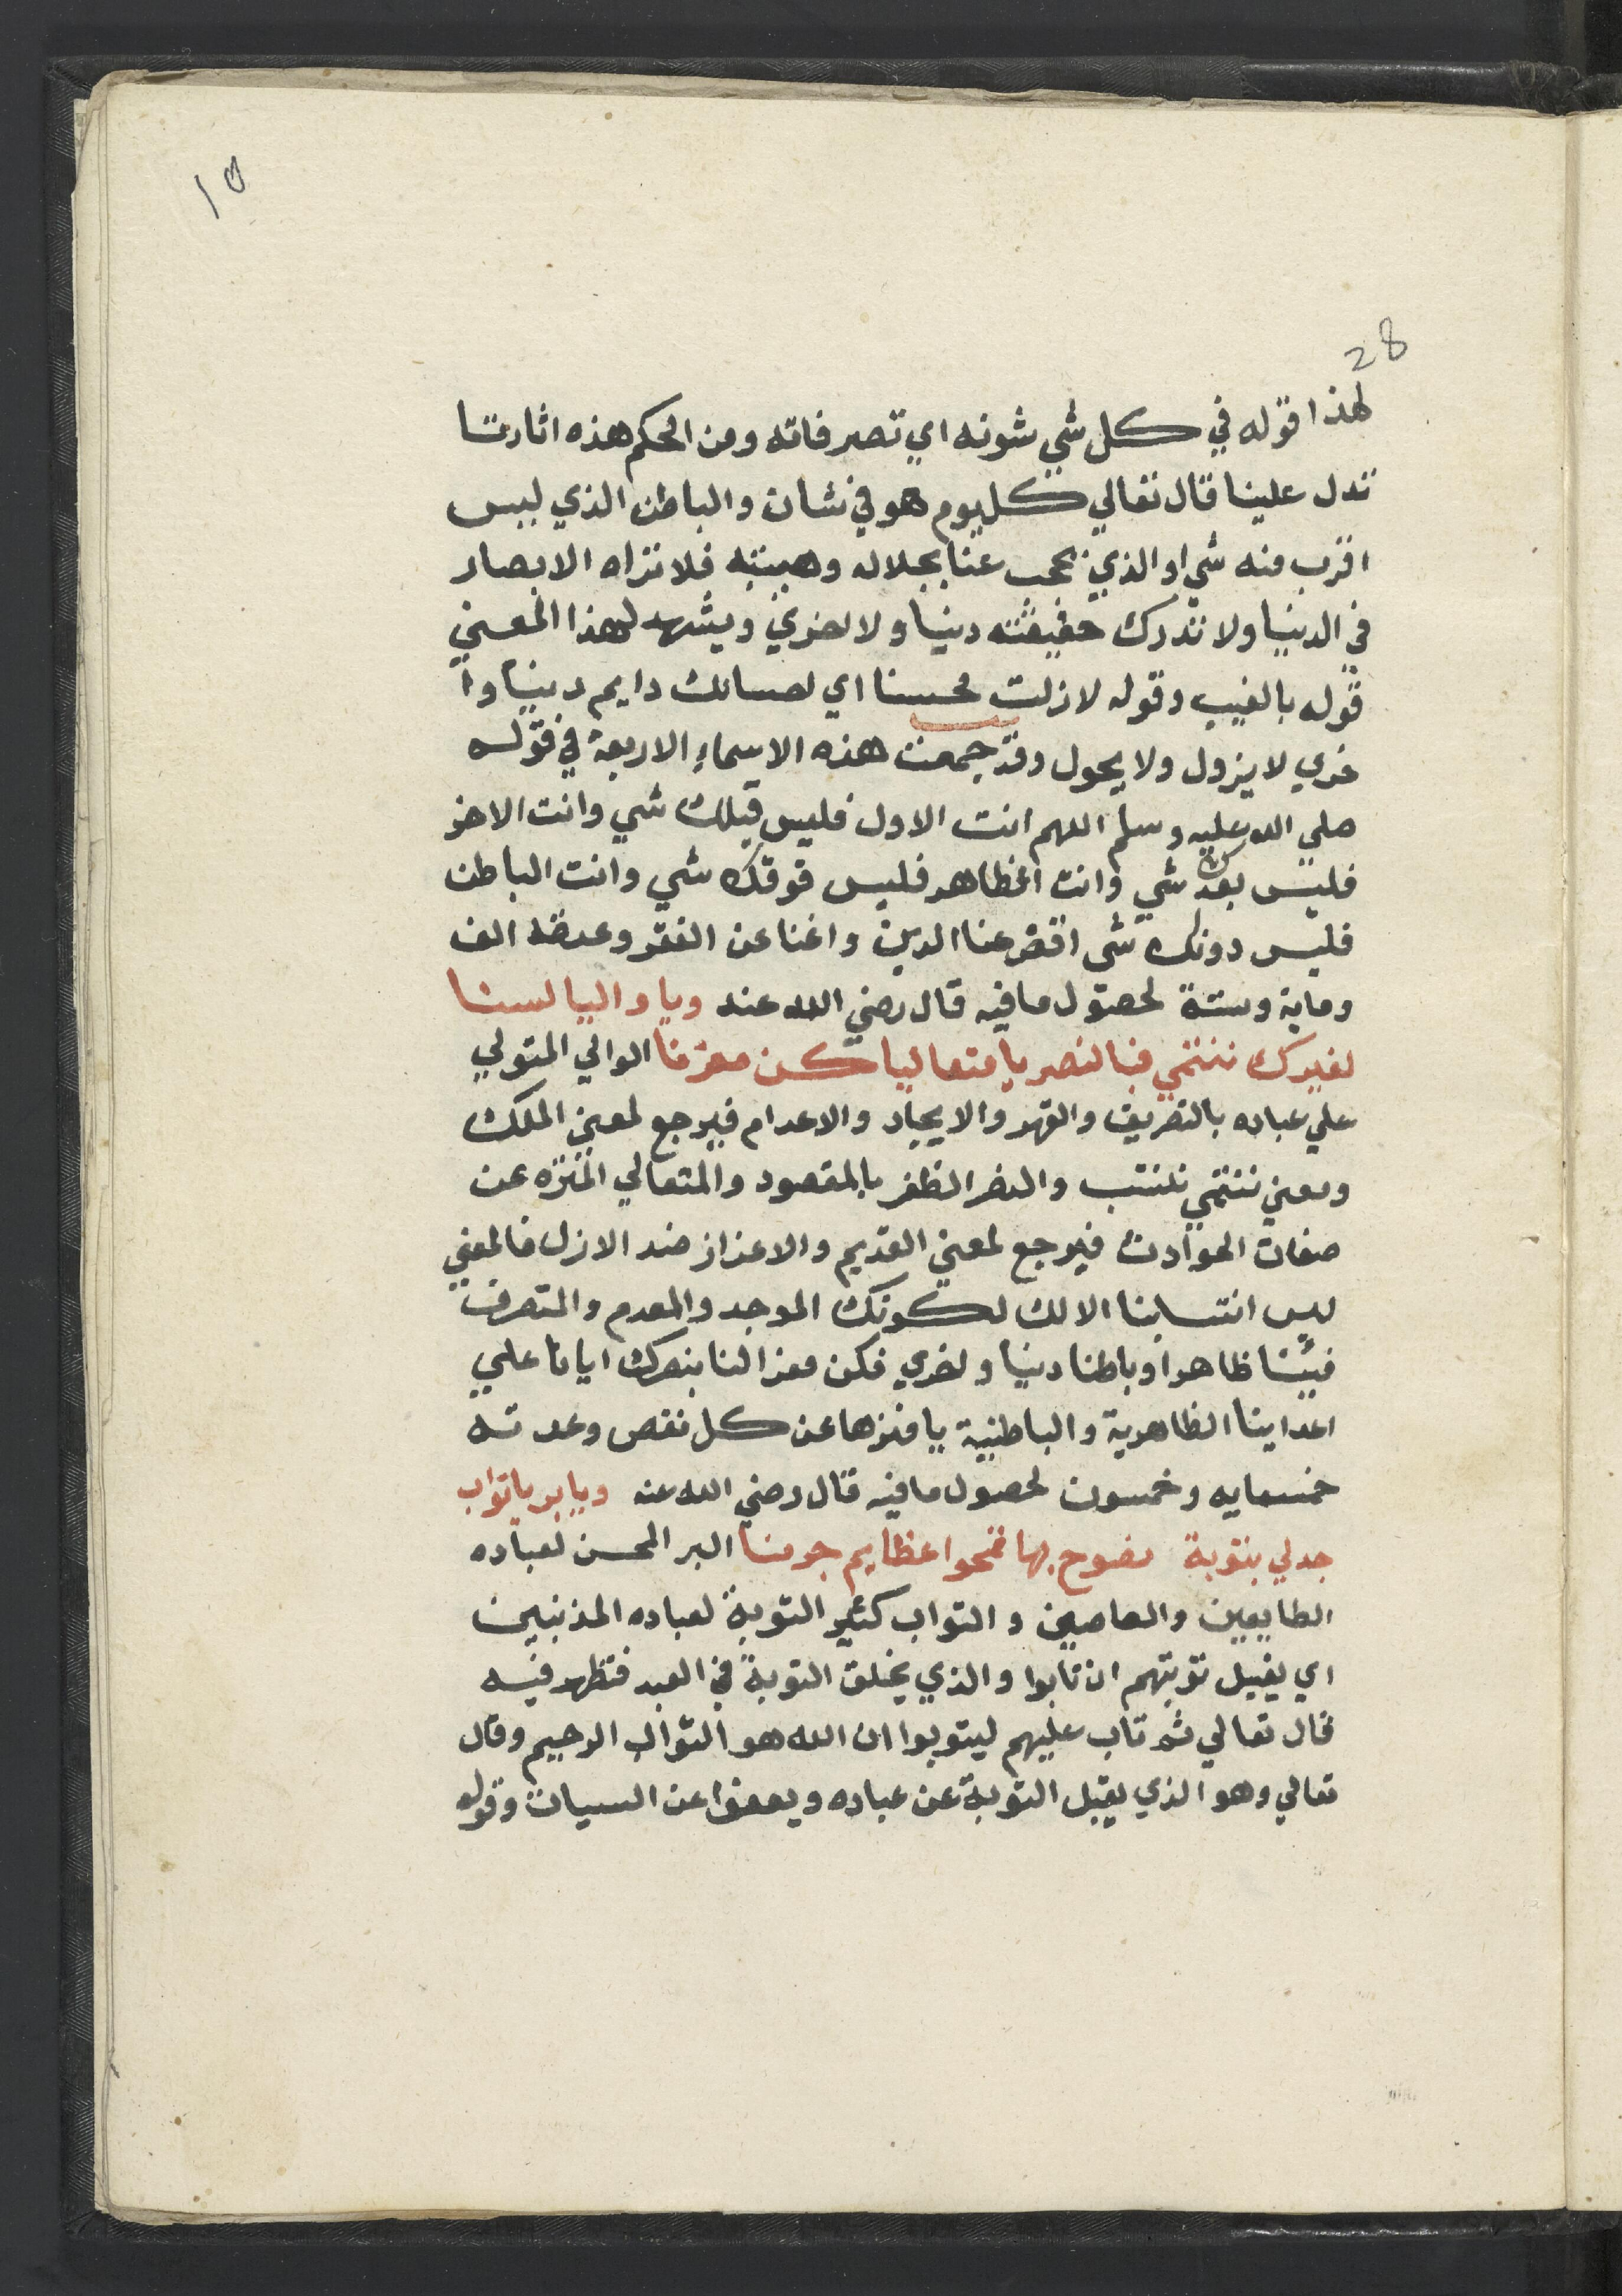 ١٥
28
لهذا قوله في كل شي شونه اي تصرفاته ومن الحكم هذه اثارنا
تدل علينا قال تعالي كل يوم هو في شان والباطن الذي ليس
اقرب منه شي او الذي يحجب عنا بجلاله وهيبته فلا تراه الابصار
في الدنيا ولا تدرك حقيقته دنيا ولا اخري ويشهد لهذا المعني
قوله بالغيب وقوله لا زلت محسنا اي احسانك دايم دنيا وا
خري لا يزول ولا يحول وقد جمعت هذه الاسماء الاربعة في قوله
صلي الله عليه وسلم اللهم انت الاول فليس قبلك شي وانت الاخر
فليس بعدك شي وانت الظاهر فليس فوقك شي وانت الباطن
فليس دونك شي اقض عنا الدين واغنا عن الفقر وعدته الف
وماية وستة لحصول ما فيه قال رضي الله عنه ويا واليا لسنا
لغيرك ننتمي فبالنصر يا متعاليا كن معزنا الوالي المتولي
علي عباده بالتصريف والقهر والايجاد والاعدام فيرجع لمعني الملك
ومعني ننتمي ننتسب والنصر الظفر بالمقصود والمتعالي المنزه عن
صفات الحوادث فيرجع لمعني القديم والاعزاز ضد الازل فالمعني
ليس انتسابنا الا لك لكونك الموجد والمعدم والمتصرف
فينا ظاهرا وباطنا دنيا واخري فكن معزا لنا بنصرك ايانا علي
اعداينا الظاهرية والباطنية يا منزها عن كل نقص وعدته
خمسمايه وخمسون لحصول ما فيه قال رضي الله عنه ويا بر يا تواب
جد لي بتوبة نصوح بها تمحوا عظايم جرمنا البر المحسن لعباده
الطايعين والعاصين والتواب كثير التوبة لعباده المذنبين
اي يقبل توبتهم ان تابوا والذي يخلق التوبة في العبد فتظهر فيه
قال تعالي ثم تاب عليهم ليتوبوا ان الله هو التواب الرحيم وقال
تعالي وهو الذي يقبل التوبة عن عباده ويعفوا عن السيات وقوله